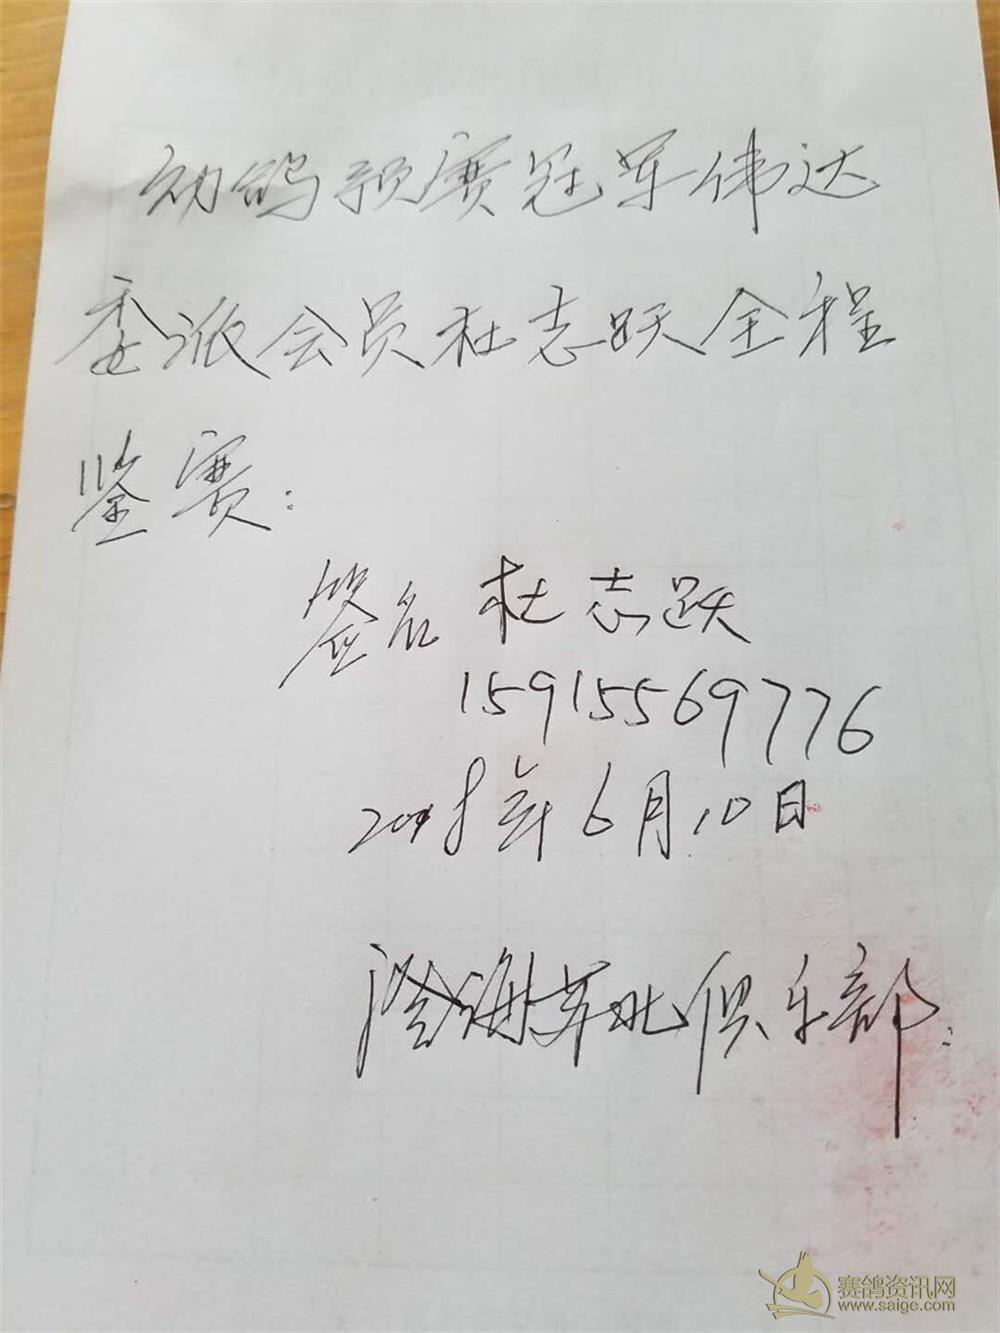 幼鸽预赛冠军伟达
委派会员杜志跃全程
鉴赛:
签名 杜志跃
15915569776
2018年6月10日
澄海苏北俱乐部:
赛鸽资讯网
www.saige.com